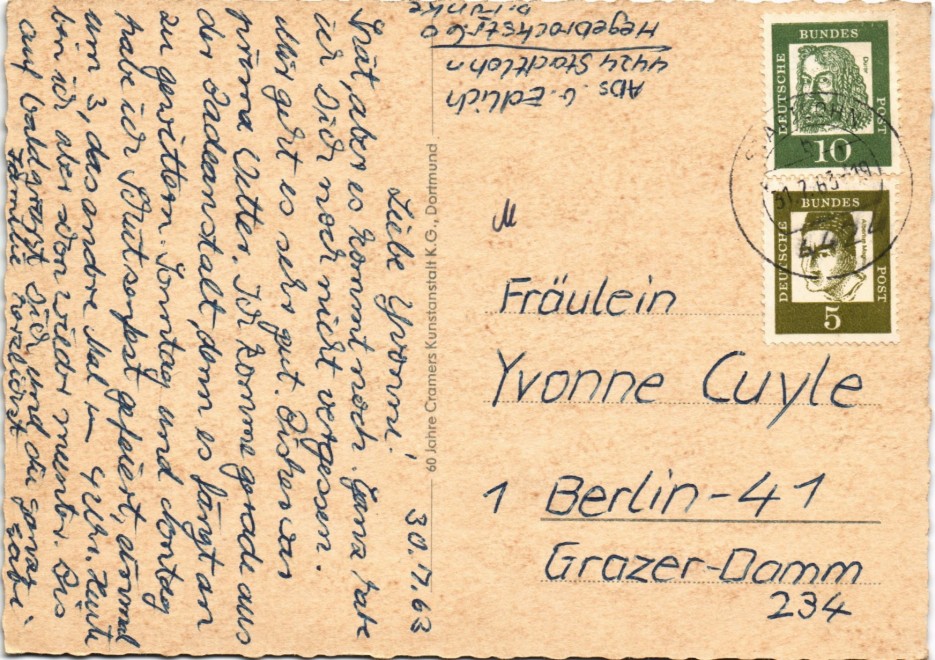 30.7.63
Liebe Yvonne!
Spät, aber es kommt noch. Ganz habe
ich Dich noch nicht vergessen.
Mir geht es sehr gut. Bisher war
prima Wetter. Ich komme gerade aus
der Badeanstalt, denn es fängt an
zu gewittern. Sonntag und Montag
habe ich Schützenfest gefeiert, einmal
um 3, das andere Mal um 4 Uhr. Heute
bin ich aber schon wieder munter. Bis
auf bald grüßt Dich und die ganze
Familie herzlichst Gabi.
60 Jahre Cramers Kunstanstalt K.G., Dortmund
Abs. G. Edlich
4424 Stadtlohn
Hegebrockstr. 60
b. Funke
DEUTSCHE
BUNDES
POST
Dürer
10
DEUTSCHE
BUNDES
POST
5
STADTLOHN
31.7.63-19
4424
Fräulein
Yvonne Cuyle
1 Berlin-41
Grazer-Damm
234